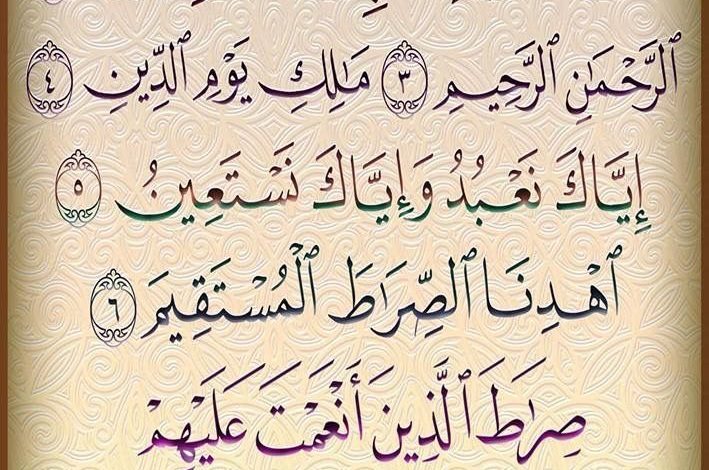 ٱلرَّحْمَٰنِ ٱلرَّحِيمِ ٣ مَٰلِكِ يَوْمِ ٱلدِّينِ ٤
إِيَّاكَ نَعْبُدُ وَإِيَّاكَ نَسْتَعِينُ ٥
ٱهْدِنَا ٱلصِّرَٰطَ ٱلْمُسْتَقِيمَ ٦
صِرَٰطَ ٱلَّذِينَ أَنْعَمْتَ عَلَيْهِمْ